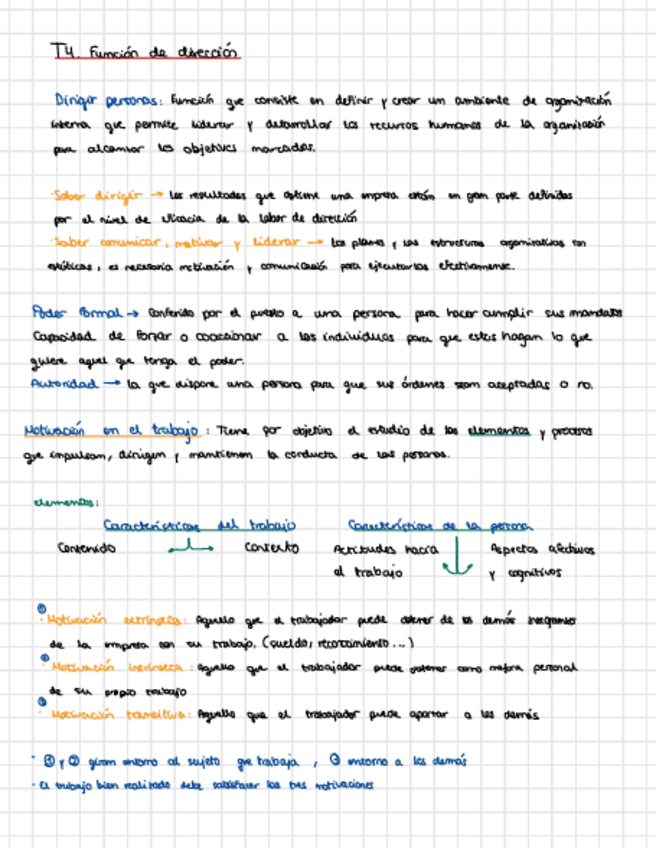 T4. Función de dirección
Dirigir personas: Función que consiste en definir y crear un ambiente de organización
interna que permite liderar y desarrollar los recursos humanos de la organización
para alcanzar los objetivos marcados.
·Saber dirigir → los resultados que obtiene una empresa están en gran parte definidas
por el nivel de eficacia de la labor de dirección
·Saber comunicar, motivar y liderar → los planes y las estructuras organizativas son
estáticas, es necesaria motivación y comunicación para ejecutarlas efectivamente.
Poder formal → Conferido por el puesto a una persona para hacer cumplir sus mandatos
Capacidad de forzar o coaccionar a los individuos para que estos hagan lo que
quiere aquel que tenga el poder.
Autoridad → la que dispone una persona para que sus órdenes sean aceptadas o no.
Motivación en el trabajo: Tiene por objetivo el estudio de los elementos y procesos
que impulsan, dirigen y mantienen la conducta de las personas.
elementos:
Características del trabajo Características de la persona
Contenido Contexto Actitudes hacia Aspectos afectivos
el trabajo y cognitivos
①
·Motivación extrínseca: Aquello que el trabajador puede obtener de los demás integrantes
de la empresa con su trabajo. (sueldo, reconocimiento...)
②
·Motivación intrínseca: Aquello que el trabajador puede obtener como mejora personal
de su propio trabajo
③
·Motivación transitiva: Aquello que el trabajador puede aportar a los demás
· ① y ② giran entorno al sujeto que trabaja, ③ entorno a los demás
· El trabajo bien realizado debe satisfacer las tres motivaciones